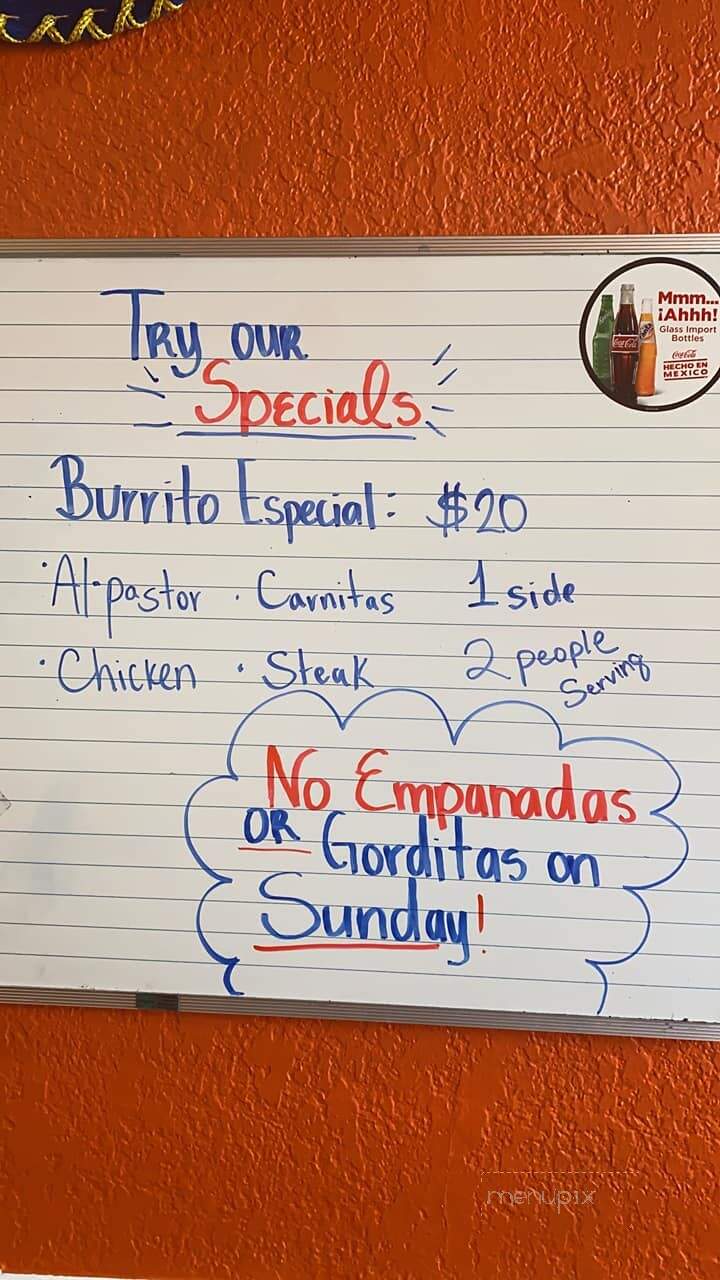 Try our
Specials
Mmm...
¡Ahhh!
Glass Import
Bottles
Coca-Cola
HECHO EN
MEXICO
Coca-Cola
Burrito Especial: $20
· Al-pastor · Carnitas 1 side
· Chicken · Steak 2 people
Serving
No Empanadas
OR Gorditas on
Sunday!
menupix